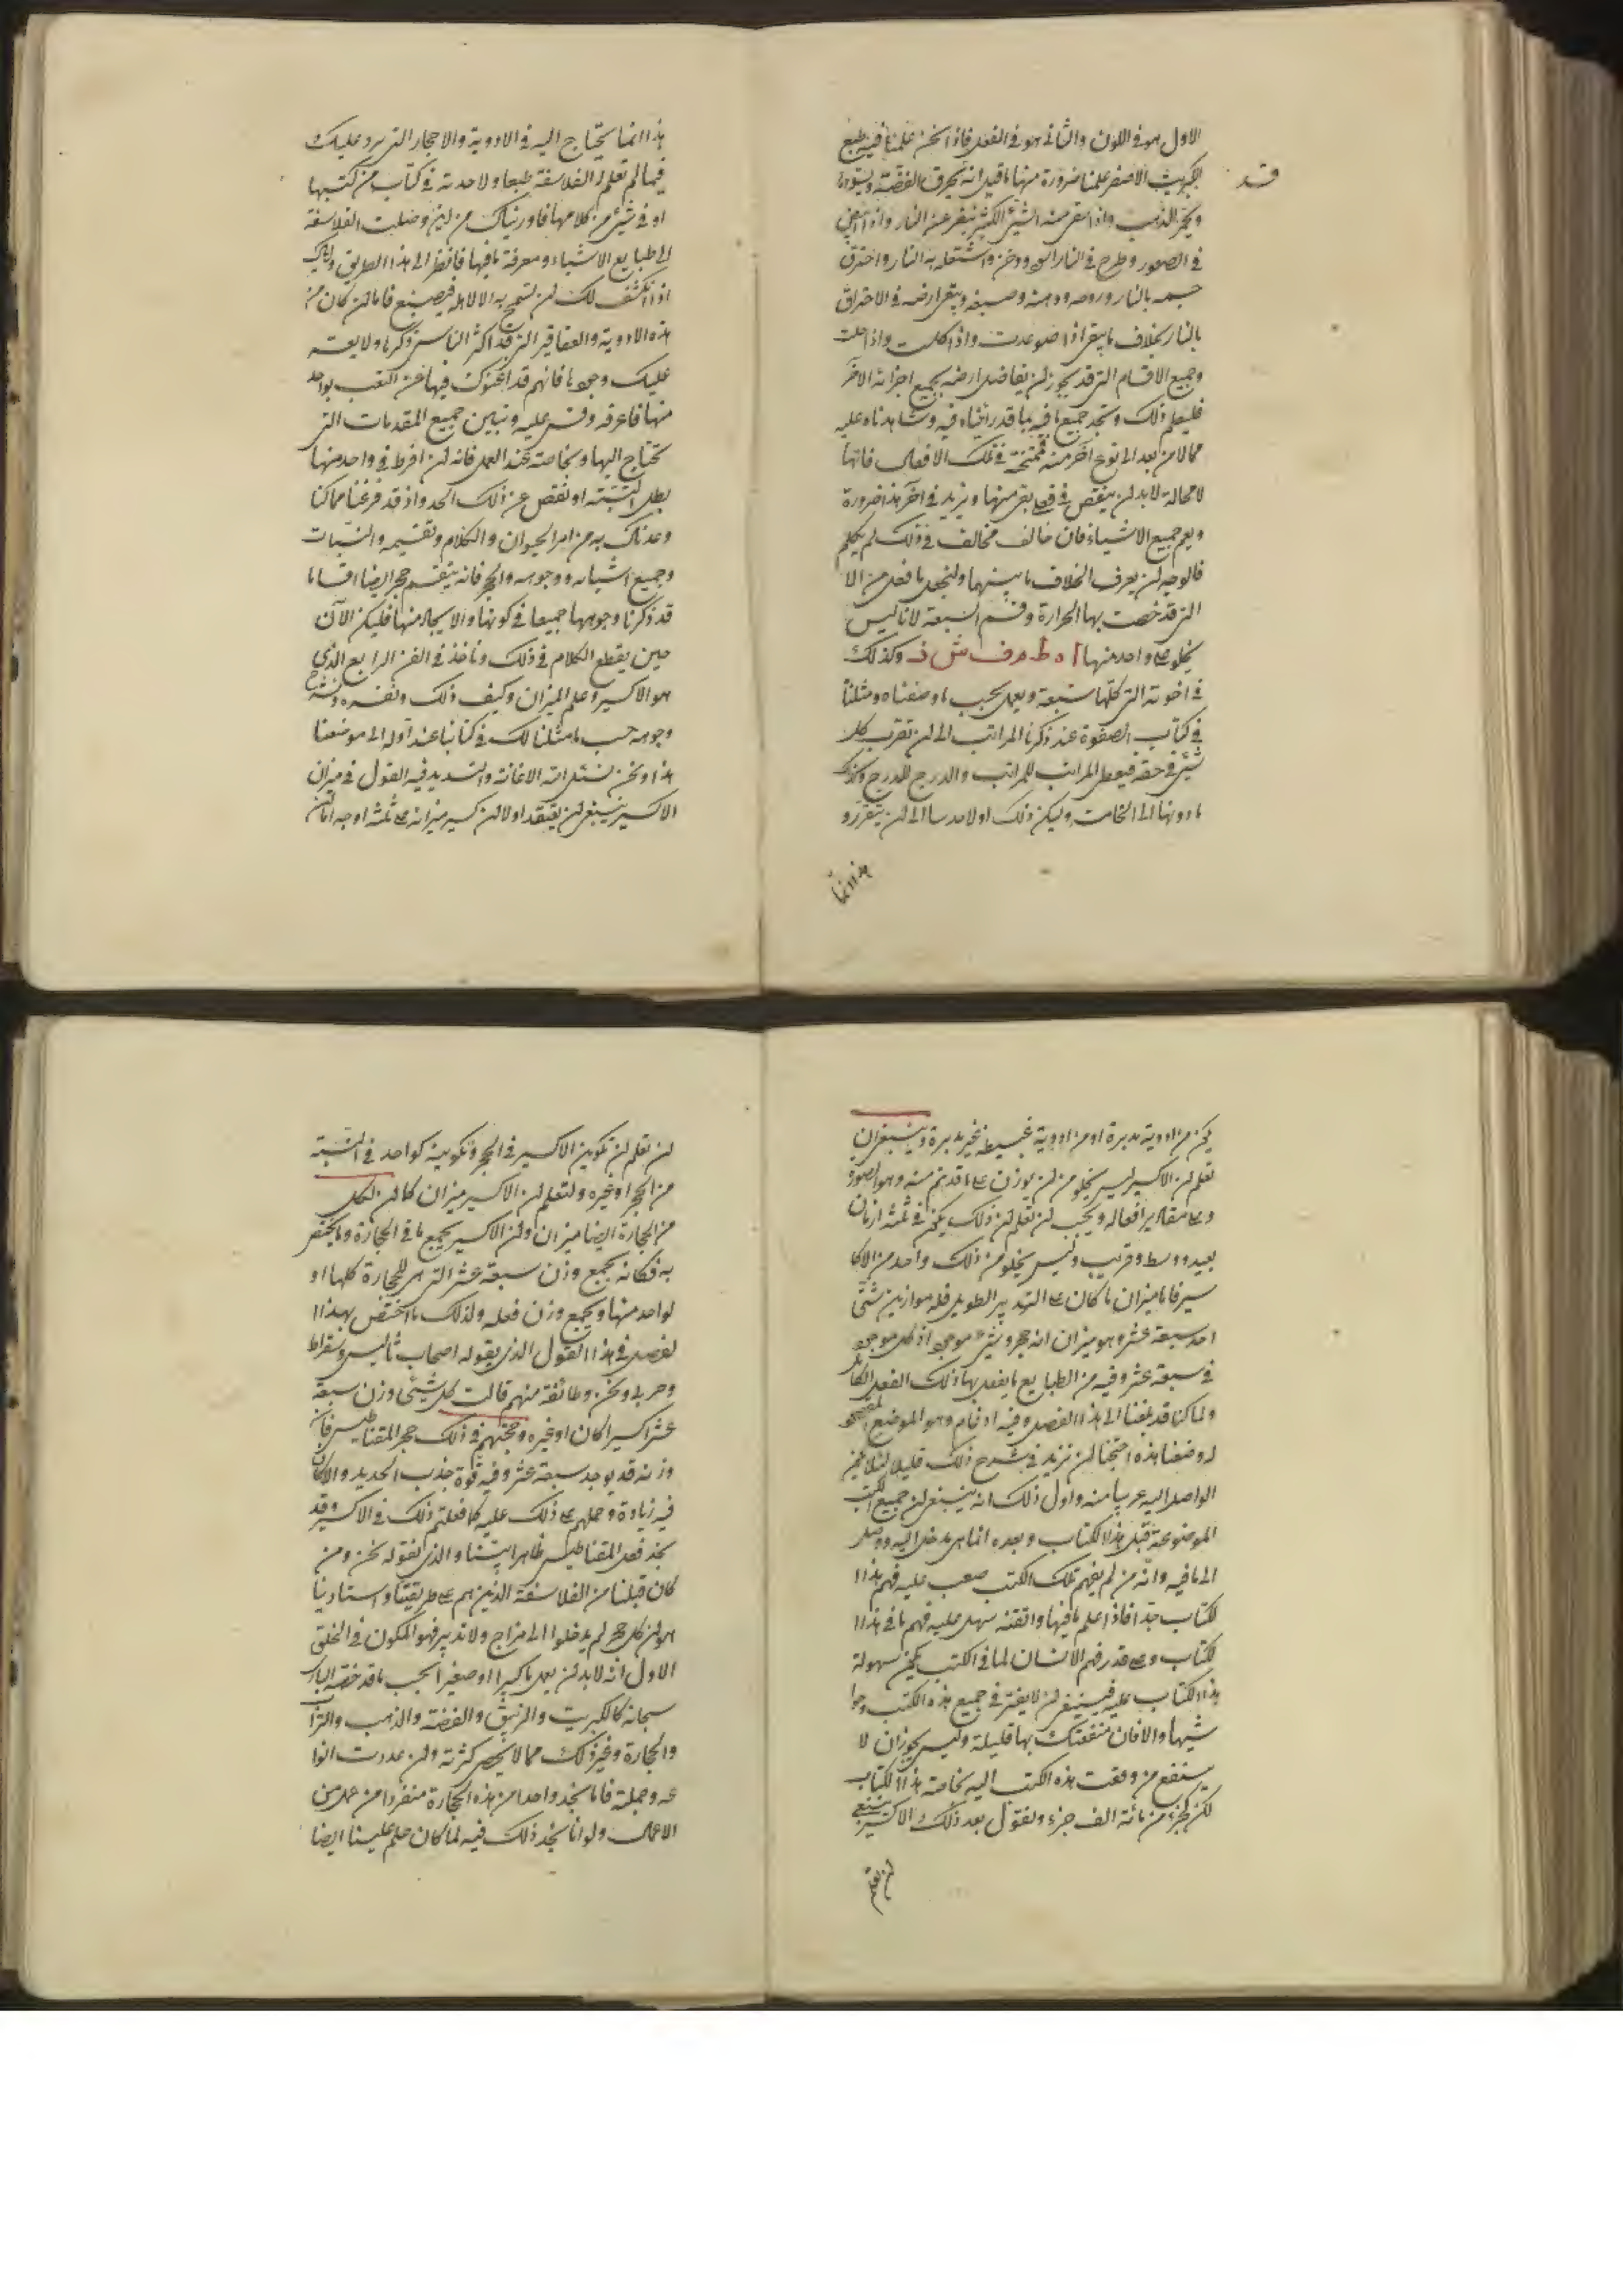 الاول هو فى اللون والثانى هو فى الفعل فاذا نحن علمنا فيه طبع
قد
الكبريت الاصفر علمنا ضرورة منها ما قيل انه يحرق الفضة ويسودها
ويحمر الذهب واذا بقى منه الشىء الكثير نفر عن النار واذا
فى الصور وطرح فى النار ودخن واشتعله به النار واحترق
جسمه بالنار وروحه ودهنه وصبغه وبقى ارضه فى الاحتراق
بالنار بخلاف ما يبقى اذا صوعدت واذا كلست واذا حلت
وجميع الاقسام التى قد يجوز لن تفاضل ارضه بجميع اجزائه الاخر
فليعلم ذلك وتجد جميع ما فيه بما قد رأيناه فيه وشاهدناه عليه
مما لا من بعد الى نوع آخر منه فتمتحنه فى تلك الافعال فانها
لا محالة لا بد لن ينقص فى بعض منها ويزيد فى آخر هذا ضرورة
ويعم جميع الاشياء فان خالف مخالف فى ذلك لم يكلم
فالوجه لن يعرف الخلاف ما بينهما ولنجعل ما فعل من الا
التى قد خصت بها الحرارة وقسم السبعة لانا ليس
يخلو واحد منها ا ه ط م ف ش ذ وكذلك
فى اخوته التى كلها سبعة ويعمل بحسب ما وصفناه ومثلنا
فى كتاب الصفوة عند ذكرنا المراتب الى لن تقرب كل
شىء فى حقه فيعطى المراتب للمراتب والدرج للدرج وكذلك
ما دونها الى الخامت وليكن ذلك اولا حدسا الى لن يتقرر و
هذا انما
هذا انما يحتاج اليه فى الادوية والاحجار التى يرد عليك
فيما لم تعلم الفلاسفة طبعا ولا حدته فى كتاب من كتبها
او فى شىء من كلامها فاوريناك من لين وصلت الفلاسفة
الى طبايع الاشياء ومعرفة ما فيها فانظر الى هذا الطريق واياك
اذا انكشف لك لن تسمح به الا لاهله فيضيع فاما لن كان من
هذه الادوية والعقاقير التى قد اكثر الناس ذكرها ولا
عليك وجودها فانهم قد اغنوك فيها عن التعب بواحد
منها فاعرفه وقس عليه وتبين جميع المقدمات التى
تحتاج اليها وبخاصة عند العمل فانه لن افرط فى واحد منها
بطل البتة او نقص عن ذلك الحد واذ قد فرغنا مما كنا
وعدناك به من امر الحيوان والكلام وتقسيمه والنبات
وجميع اشباهه ووجوهه والحجر فانه ينقسم حجر ايضا اقساما
قد ذكرنا وجوهها جميعا فى كونها والايجاد منها فليكن الآن
حين يقطع الكلام فى ذلك وناخذ فى الفن الرابع الذى
هو الاكسير وعلم الميزان وكيف ذلك ونفسره ونشرح
وجوهه حسب ما مثلنا لك فى كتابنا عند اوله الى موضعنا
هذا ونحن نسئل الله الاعانة والتسديد فيه القول فى ميزان
الاكسير ينبغى لن يعتقد اولا لن كسير ميزانه على ثلثة اوجه اما لن
يكن من ادوية مدبرة او من ادوية عبيطة غير مدبرة وينبغى ان
تعلم لن الاكسير ليس يخلو من لن يوزن على ما قد تم منه وهو الصورة
وعلى مقادير افعاله ويجب لن تعلم لن ذلك يكن فى ثلثة ازمان
بعيد ووسط وقريب وليس يخلو من ذلك واحد من الاكا
سير فاما ميزان ما كان على التدبير الطويل فله موازين شتى
احد سبعة عشر وهو ميزان انه حجر وشىء موجود اذ كل موجود
فى سبعة عشر وفيه من الطبايع ما يفعل بها ذلك الفعل الكائن
ولما كنا قد بلغنا الى هذا الفصل وفيه ادغام وهو الموضع المقصود
له وضعنا هذه احتجنا لن نزيد فى شرح ذلك قليلا لئلا يكن
الواصل اليه عريا منه واول ذلك انه ينبغى لن جميع الكتب
الموضوعة قبل هذا الكتاب وبعده انما هى مدخل اليه ووصلة
الى ما فيه وانه من لم يفهم تلك الكتب صعب عليه فهم هذا ا
لكتاب جدا فاذا علم ما فيها واتقنه سهل عليه فهم ما فى هذا ا
لكتاب وعلى قدر فهم الانسان لما فى الكتب يكن سهولة
هذا الكتاب عليه فينبغى لن لا يفتر فى جميع هذه الكتب وحوا
شيها والا فان منفعتك بها قليلة وليس يجوز ان لا
ينتفع من وقعت هذه الكتب اليه بخاصة هذا الكتاب
لكن كجزء من مائة الف جزء ونقول بعد ذلك الاكسير ينبغى
لن تعلم
لن تعلم لن تكوين الاكسير فى الحجر وتكوينه كواحد فى النسبة
من الحجر او غيره ولتعلم لن الاكسير ميزان كما لن لكل
من الحجارة ايضا ميزان ولن الاكسير يجمع ما فى الحجارة وما يختص
به فكانه يجمع وزن سبعة عشر التى هى للحجارة كلها او
لواحد منها ويجمع وزن فعله ولذلك ما اختص بهذا ا
لفصل فى هذا القول الذى يقوله اصحاب ثاليس وسقراط
وحربى ونحن وطائفة منهم قالت كل شىء وزن سبعة
عشر اكسيرا كان او غيره وحجتهم فى ذلك حجر المقناطيس فان
وزنه قد يوجد سبعة عشر وفيه قوة جذب الحديد والا كان
فيه زيادة وحملهم على ذلك عليه كما فعلتم ذلك فى الاكسير وقد
نجد فعل المقناطيس ظاهرا بيننا والذى نقوله نحن ومن
كان قبلنا من الفلاسفة الذين هم على طريقنا واستادينا
هو لن كل حجر لم يدخلوا الى مزاج ولا تدبير فهو المكون فى الخلق
الاول انه لا بد لن يعمل ما كبيرا او صغيرا بحسب ما قد خصه البارى
سبحانه كالكبريت والزيبق والفضة والذهب والتراب
والحجارة وغير ذلك مما لا يحصر كثرته ولن عددت انوا
عه وجملة فانا نجد واحدا من هذه الحجارة منفردا من عمل من
الاعمال ولو انا نجد ذلك فيه لما كان حكم علينا ايضا